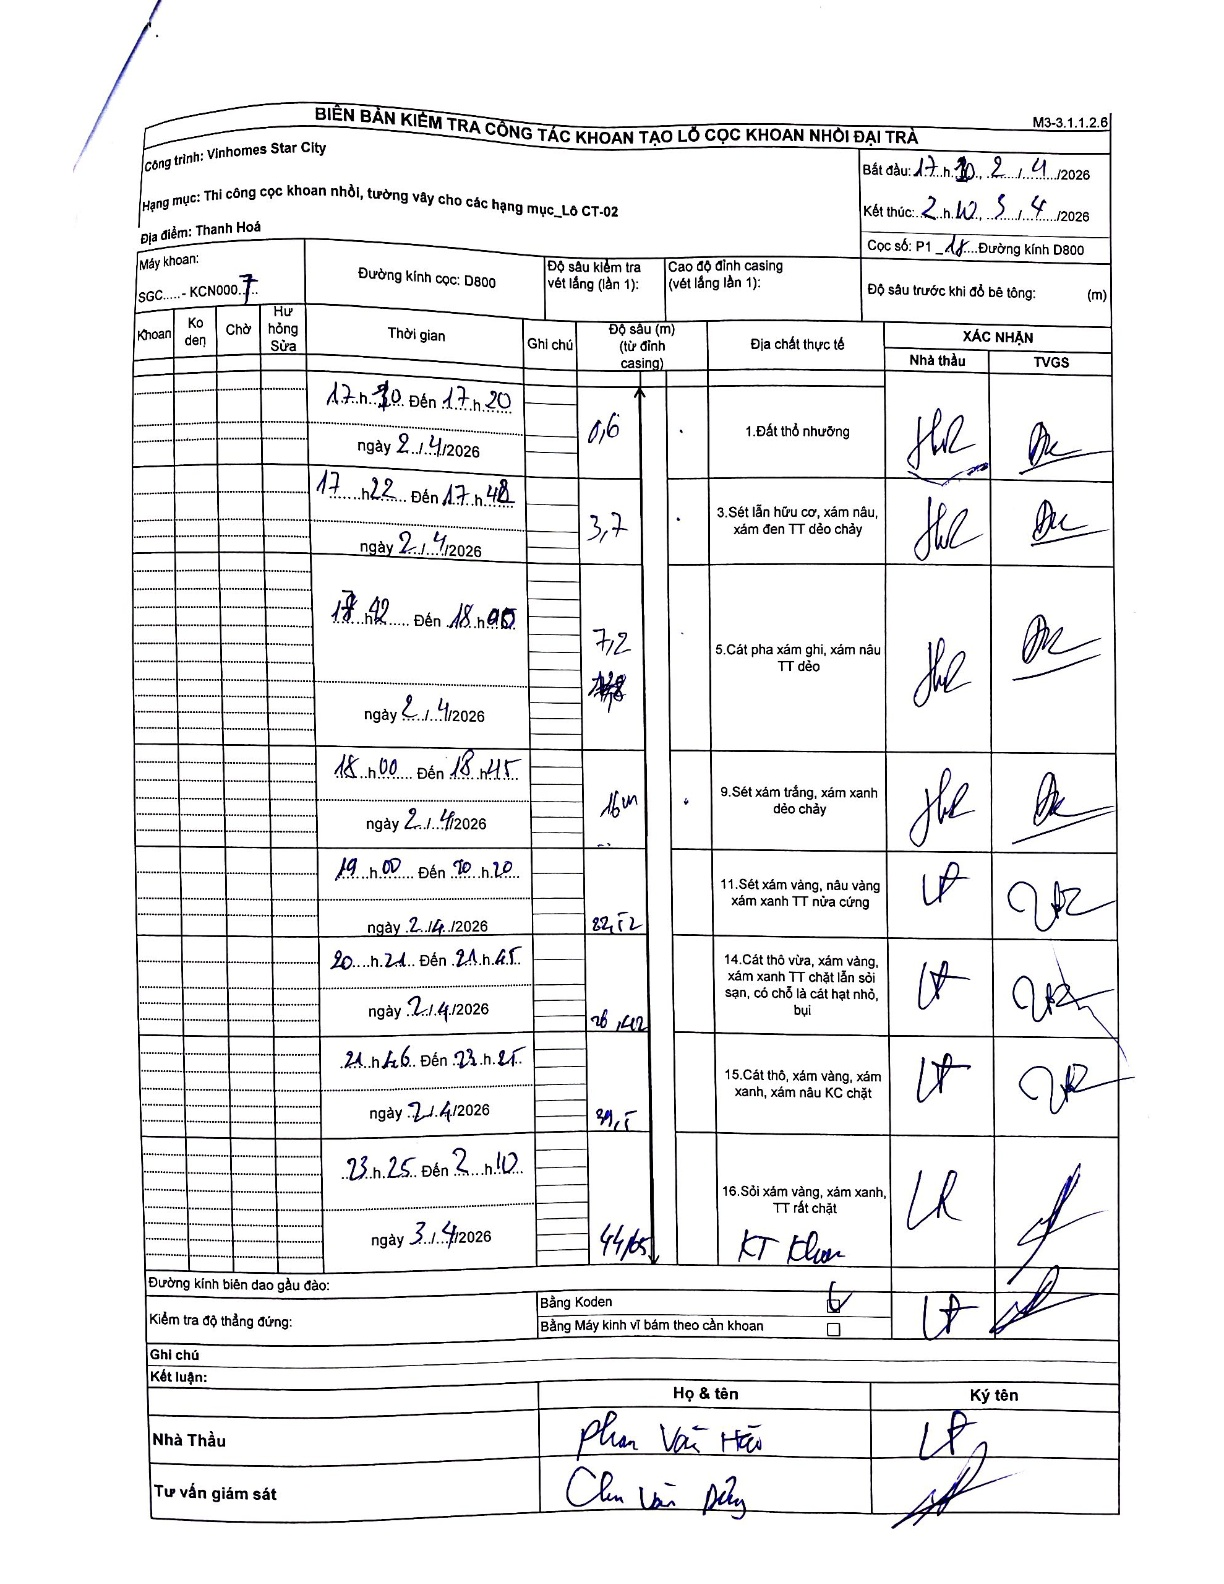 M3-3.1.1.2.6
BIÊN BẢN KIỂM TRA CÔNG TÁC KHOAN TẠO LỖ CỌC KHOAN NHỒI ĐẠI TRÀ
Công trình: Vinhomes Star City
Hạng mục: Thi công cọc khoan nhồi, tường vây cho các hạng mục_Lô CT-02
Địa điểm: Thanh Hoá
Bắt đầu: 17 h 10, 2 / 4 /2026
Kết thúc: 2 h 10, 3 / 4 /2026
Cọc số: P1_18 Đường kính D800
Máy khoan:
SGC.....- KCN000 7
Đường kính cọc: D800
Độ sâu kiểm tra vét lắng (lần 1):
Cao độ đỉnh casing (vét lắng lần 1):
Độ sâu trước khi đổ bê tông: (m)
Khoan
Ko den
Chờ
Hư hỏng Sửa
Thời gian
Ghi chú
Độ sâu (m) (từ đỉnh casing)
Địa chất thực tế
XÁC NHẬN
Nhà thầu
TVGS
17 h 10 Đến 17 h 20
ngày 2 / 4 /2026
0,6
1.Đất thổ nhưỡng
17 h 22 Đến 17 h 42
ngày 2 / 4 /2026
3,7
3.Sét lẫn hữu cơ, xám nâu, xám đen TT dẻo chảy
h 42 Đến 18 h
ngày 2 / 4 /2026
7,2
5.Cát pha xám ghi, xám nâu TT dẻo
18 h 00 Đến 18 h 45
ngày 2 / 4 /2026
16m
9.Sét xám trắng, xám xanh dẻo chảy
19 h 00 Đến 20 h 20
ngày 2 / 4 /2026
22,52
11.Sét xám vàng, nâu vàng xám xanh TT nửa cứng
20 h 21 Đến 21 h 45
ngày 2 / 4 /2026
14.Cát thô vừa, xám vàng, xám xanh TT chặt lẫn sỏi sạn, có chỗ là cát hạt nhỏ, bụi
21 h 46 Đến 23 h 25
ngày 2 / 4 /2026
15.Cát thô, xám vàng, xám xanh, xám nâu KC chặt
23 h 25 Đến 2 h 10
ngày 3 / 4 /2026
44,65
16.Sỏi xám vàng, xám xanh, TT rất chặt
KT Khoan
Đường kính biên dao gầu đào:
Kiểm tra độ thẳng đứng:
Bằng Koden
Bằng Máy kinh vĩ bám theo cần khoan
Ghi chú
Kết luận:
Họ & tên
Ký tên
Nhà Thầu
Phan Văn Hào
Tư vấn giám sát
Chu Văn Dũng